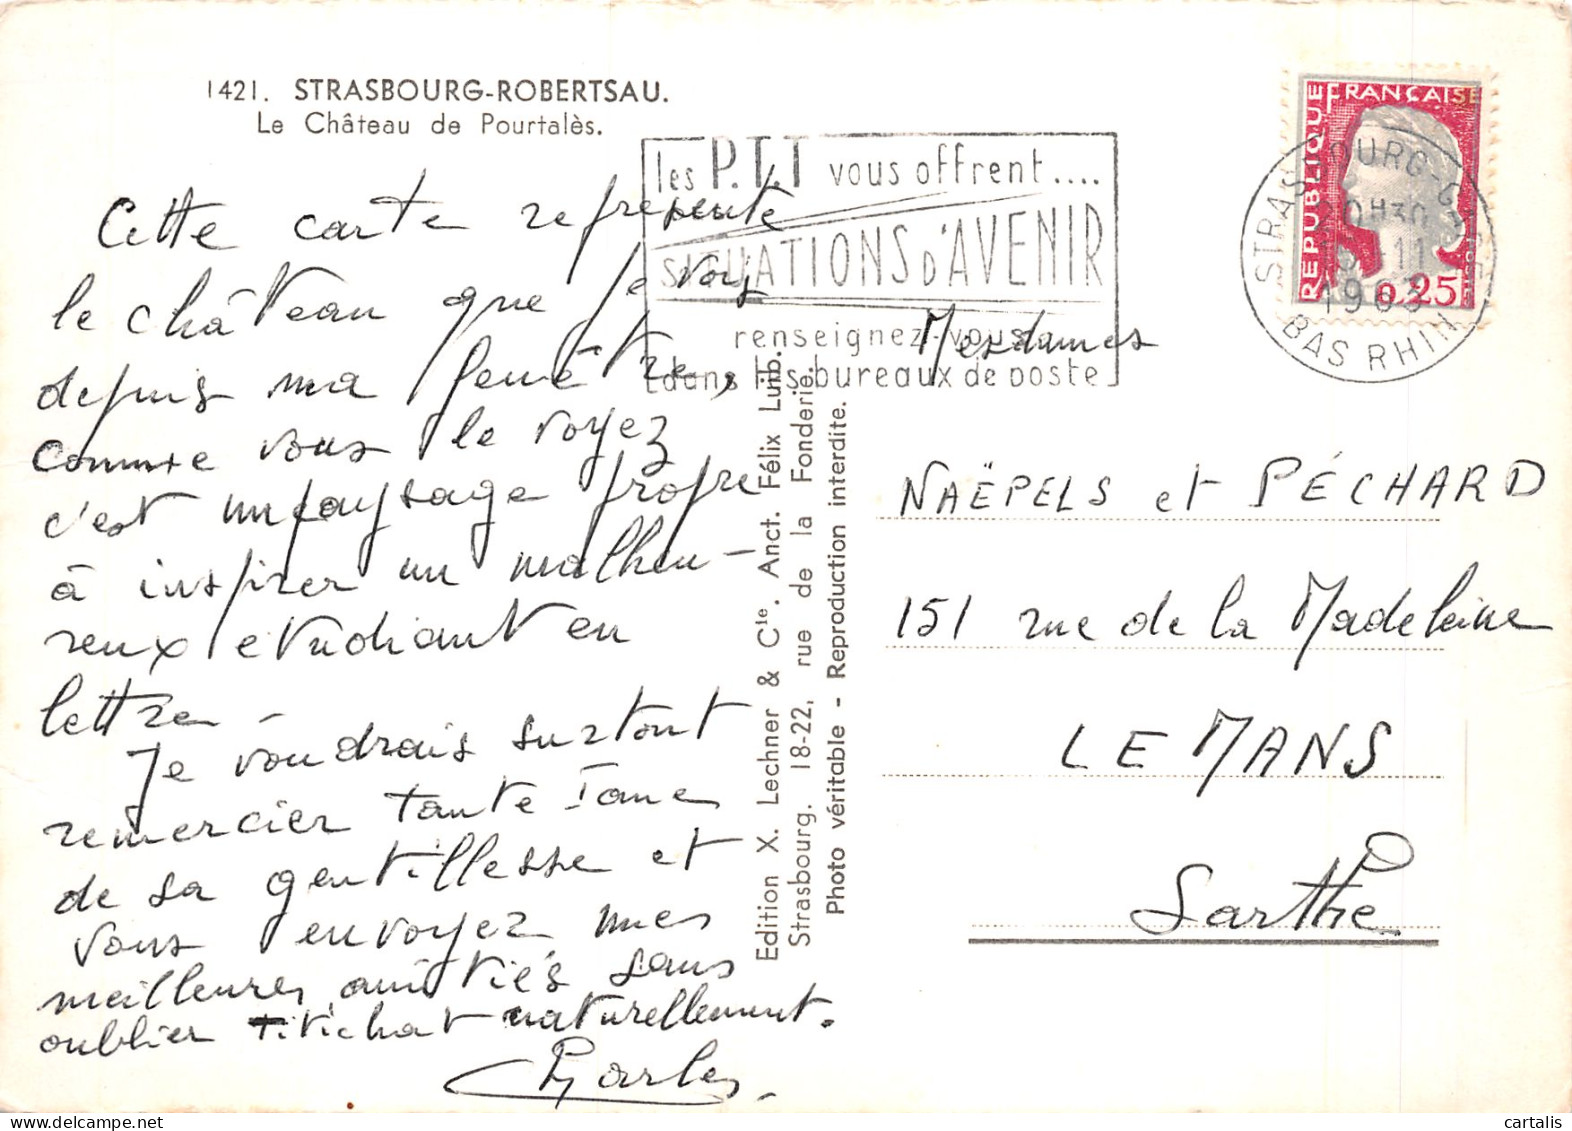 1421. STRASBOURG-ROBERTSAU.
Le Château de Pourtalès.
Cette carte représente
le château que je vois
depuis ma fenêtre,
comme vous le voyez
c'est un paysage propre
à inspirer un malheu-
reux étudiant en
lettre -
Je voudrais surtout
remercier tante Jane
de sa gentillesse et
vous envoyez mes
meilleures amitiés sans
oublier Titichat naturellement.
Charles.
Edition X. Lechner & Cie. Anct. Félix Luib.
Strasbourg. 18-22, rue de la Fonderie.
Photo véritable - Reproduction interdite.
les P.T.T vous offrent....
SITUATIONS D'AVENIR
renseignez-vous
dans les bureaux de poste
REPUBLIQUE FRANÇAISE
0,25
POSTES
STRASBOURG-GARE
20H30
11
1963
BAS RHIN
Mesdames
NAËPELS et PÉCHARD
151 rue de la Madeleine
LE MANS
Sarthe
cartalis
delcampe.net